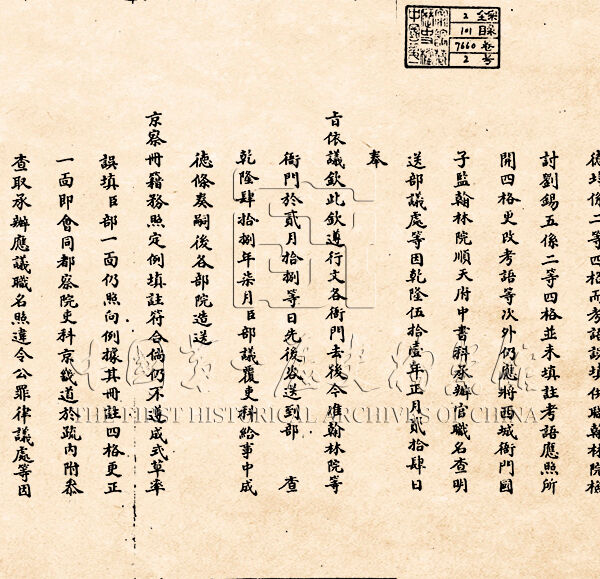 德墧係二等四格而考語誤填供職翰林院檢
討劉錫五係二等四格並未填註考語應照所
開四格更改考語等次外仍應將西城衙門國
子監翰林院順天府中書科承辦官職名查明
送部議處等因乾隆伍拾壹年正月貳拾肆日
奉
旨依議欽此欽遵行文各衙門去後今准翰林院等
衙門於貳月拾捌等日先後咨送到部 查
乾隆肆拾捌年柒月臣部議覆吏科給事中成
德條奏嗣後各部院造送
京察冊籍務照定例填註符合倘仍不遵成式草率
誤填臣部一面仍照向例據其冊註四格更正
一面即會同都察院吏科京畿道於疏內附參
查取承辦應議職名照違令公罪律議處等因
全宗 2
目錄 101
卷号 7660
号 2
中國第一歷史檔案館
THE FIRST HISTORICAL ARCHIVES OF CHINA